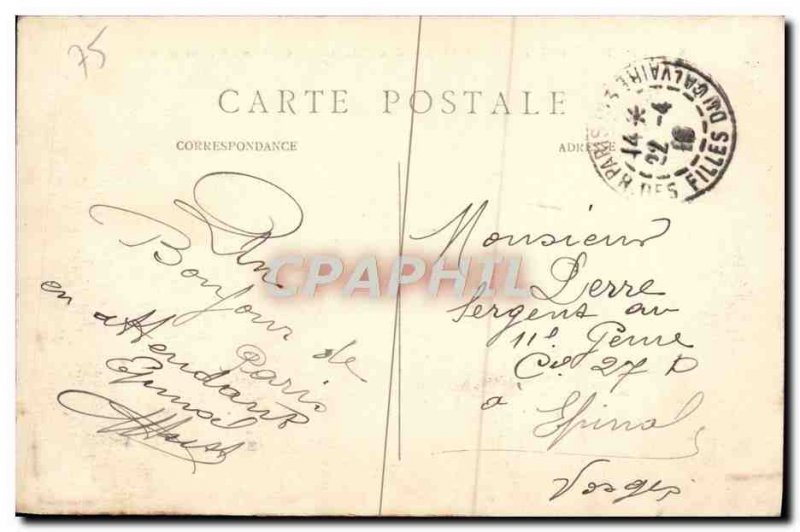 75
CARTE POSTALE
CORRESPONDANCE
ADRESSE
14* 22 -4 16
R. DES FILLES DU CALVAIRE
PARIS
Un
Bonjour de
Paris
en attendant
Epinal
Monsieur
Perre
Sergent au
11e Génie
Cie 27
à Epinal
Vosges
CPAPHIL